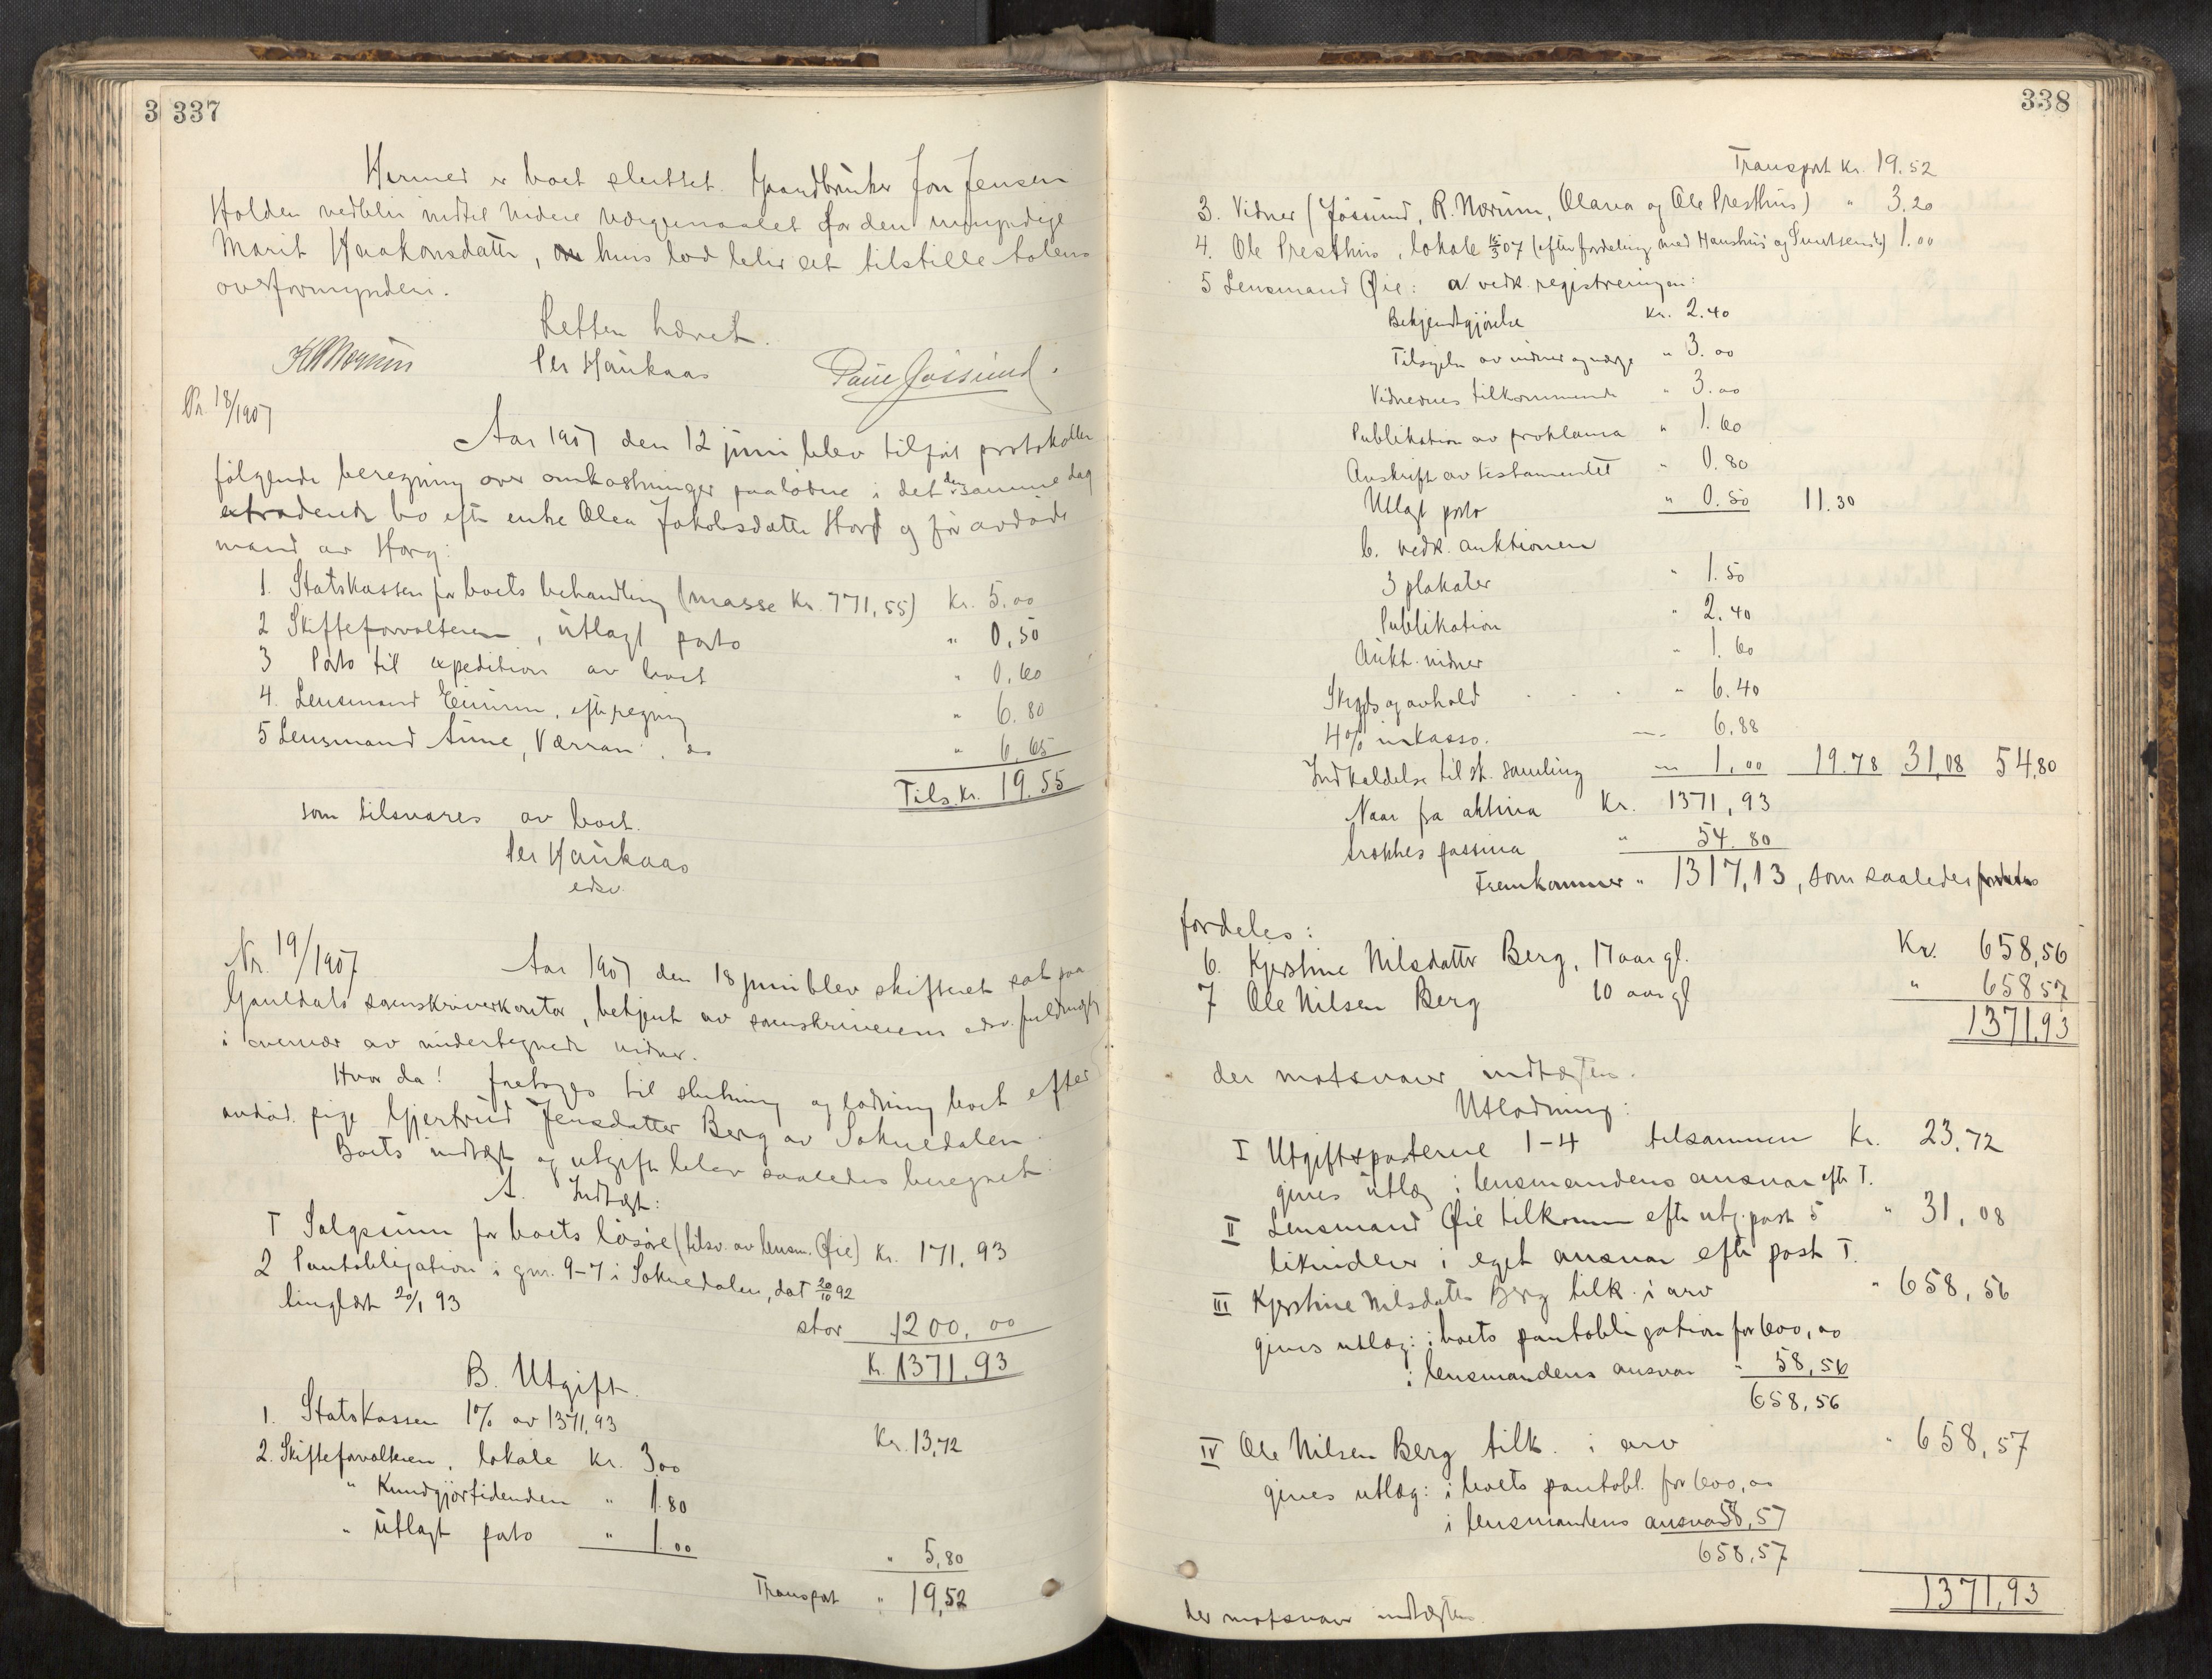 3 337
Hermed er boet sluttet. Gaardbruker Jon Jensen
Holden vedblir indtil videre værgemaalet for den umyndige
Marit Haakonsdatter, hvis lod blir at tilstille Holens
overformynderi.
Retten hævet.
Per Haukaas
Paul Jössund.
Nr. 18/1907
Aar 1907 den 12 juni blev tilført protokollen
følgende beregning over omkostninger paaløbne i det den samme dag
extraderede bo efter enke Olea Jakobsdatter Horg og før avdøde
mand av Horg:
1. Statskassen for boets behandling (masse Kr. 771,55) Kr. 5.00
2 Skifteforvalteren, utlagt porto " 0,50
3 Porto til expedition av boet " 0,60
4. Lensmand Einum, efter regning " 6.80
5 Lensmand Aune, Værran, do " 6,65
Tils. Kr. 19.55
som tilsvares av boet.
Per Haukaas
edsv.
Nr. 19/1907
Aar 1907 den 18 juni blev skifteret sat paa
Gauldals sorenskriverkontor, betjent av sorenskriverens edsv. fuldmægtig
i overvær av undertegnede vidner.
Hvor da! foretoges til slutning og lodning boet efter
avdød pige Gjertrud Jensdatter Berg av Soknedalen.
Boets indtægt og utgift blev saaledes beregnet:
A. Indtægt:
I Salgssum for boets løsøre (tilsv. av lensm. Øie) Kr. 171,93
2 Pantobligation i gnr. 9-7 i Soknedalen, dat 20/10 92
tinglæst 20/1 93
stor 1200,00
Kr. 1371,93
B. Utgift.
1. Statskassen 1% av 1371,93 Kr. 13,72
2. Skifteforvalteren, lokale Kr. 3,00
" Kundgjørtidenden " 1.80
" utlagt porto " 1.00
" 5,80
Transport " 19,52
338
Transport Kr. 19.52
3. Vidner (Jössund, R. Norum, Olava og Ole Presthus) " 3,20
4. Ole Presthus, lokale 15/3 07 (efter fordeling med Haushus og ) 1.00
5 Lensmand Øie: a. vedk. registreringen:
Bekjendtgjørelse Kr. 2.40
Tilsigelse av vidner og værge " 3.00
Vidnernes tilkommende " 3.00
Publikation av proklama " 1.60
Avskrift av testamentet " 0.80
Utlagt porto " 0.50 11.30
b. vedk. auktionen
3 plakater " 1.50
Publikation " 2.40
Aukt. vidner " 1.60
Skyds og ophold " 6.40
4% inkasso. 6.88
Indkaldelse til sk. samling 1,00 19.78 31,08 54,80
Naar fra aktiva Kr. 1371,93
trækkes passiva " 54.80
Fremkommer " 1317,13, som saaledes
fordeles:
6. Kjerstine Nilsdatter Berg, 17 aar gl. Kr. 658,56
7 Ole Nilsen Berg 10 aar gl " 658 57
1371,93
der motsvarer indtægten.
Utlodning:
I Utgiftsposterne 1-4 tilsammen Kr. 23,72
gives utlæg i lensmandens ansvar efter I.
II Lensmand Øie tilkommer efter utg. post 5 " 31,08
likviderer i eget ansvar efter post I.
III Kjerstine Nilsdatter Berg tilk. i arv " 658,56
gives utlæg: i boets pantobligation for 600,00
i lensmandens ansvar " 58,56
658,56
IV Ole Nilsen Berg tilk. i arv " 658,57
gives utlæg: i boets pantobl. for 600,00
i lensmandens ansvar 58,57
658,57
1371,93
der motsvarer indtægten.